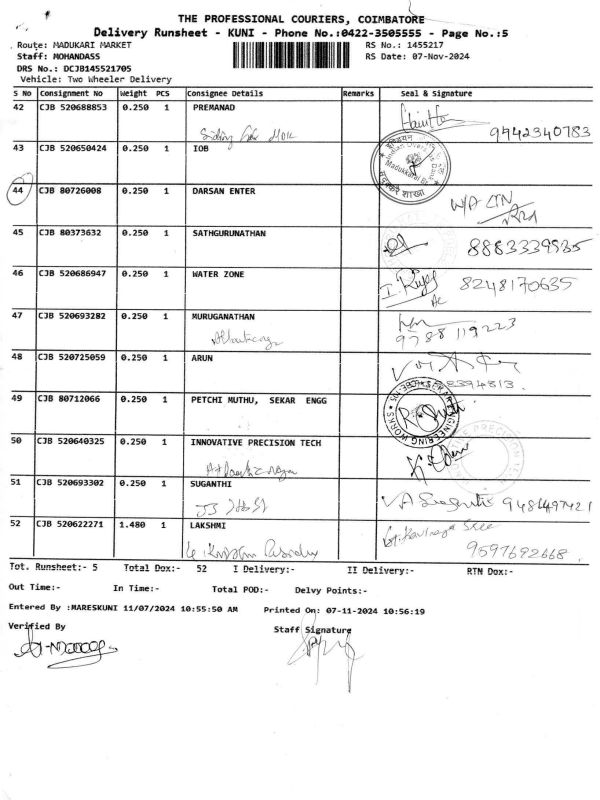 THE PROFESSIONAL COURIERS, COIMBATORE
Delivery Runsheet - KUNI - Phone No.:0422-3505555 - Page No.:5
Route: MADUKARI MARKET RS No.: 1455217
Staff: MOHANDASS RS Date: 07-Nov-2024
DRS No.: DCJB145521705
Vehicle: Two Wheeler Delivery
S No Consignment No Weight PCS Consignee Details Remarks Seal & Signature
42 CJB 520688853 0.250 1 PREMANAD
9442340783
43 CJB 520650424 0.250 1 IOB
44 CJB 80726008 0.250 1 DARSAN ENTER
W/A LTN
45 CJB 80373632 0.250 1 SATHGURUNATHAN
8883339535
46 CJB 520686947 0.250 1 WATER ZONE
8248170635
47 CJB 520693282 0.250 1 MURUGANATHAN
9788119223
48 CJB 520725059 0.250 1 ARUN
49 CJB 80712066 0.250 1 PETCHI MUTHU, SEKAR ENGG
50 CJB 520640325 0.250 1 INNOVATIVE PRECISION TECH
51 CJB 520693302 0.250 1 SUGANTHI
52 CJB 520622271 1.480 1 LAKSHMI
9597692668
Tot. Runsheet:- 5 Total Dox:- 52 I Delivery:- II Delivery:- RTN Dox:-
Out Time:- In Time:- Total POD:- Delvy Points:-
Entered By :MARESKUNI 11/07/2024 10:55:50 AM Printed On: 07-11-2024 10:56:19
Verified By Staff Signature